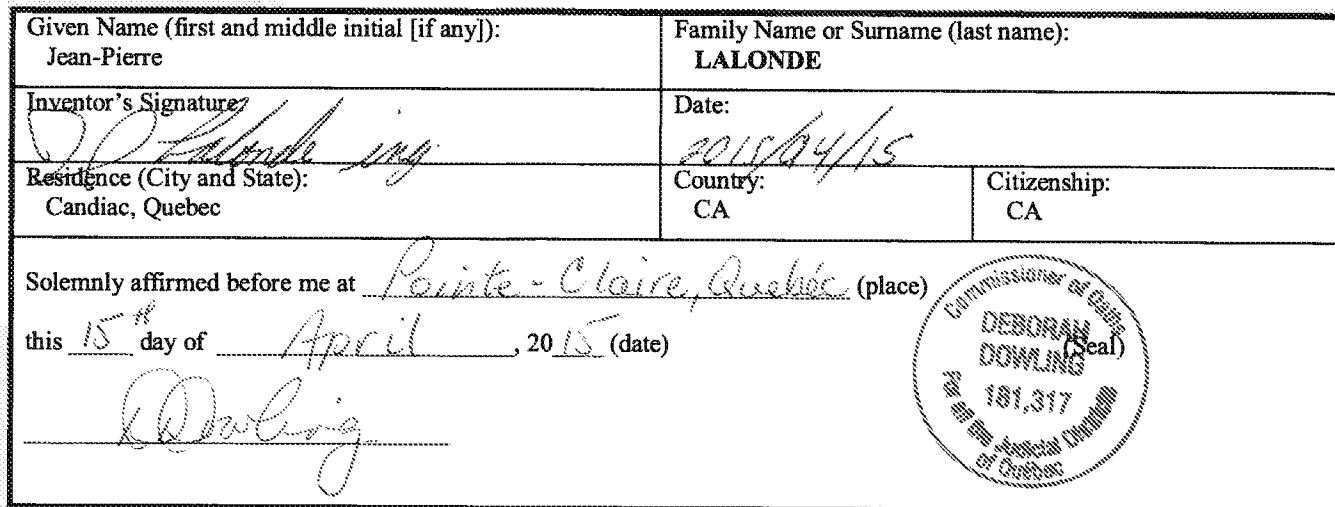 Given Name (first and middle initial [if any]):
Jean-Pierre
Family Name or Surname (last name):
LALONDE
Inventor's Signature:
JP Lalonde ing.
Date:
2015/04/15
Residence (City and State):
Candiac, Quebec
Country:
CA
Citizenship:
CA
Solemnly affirmed before me at Pointe-Claire, Quebéc (place)
this 15th day of April, 2015 (date)
(Seal)
DDowling
Commissioner of Oaths
DEBORAH
DOWLING
181,317
For all the Judicial Districts
of Québec